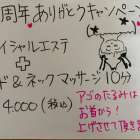 周年ありがとうキャンペーン
イシャルエステ
+
ド&ネックマッサージ10分
4.000(税込)
アゴのたるみは
お首から!
上げさせて頂きます